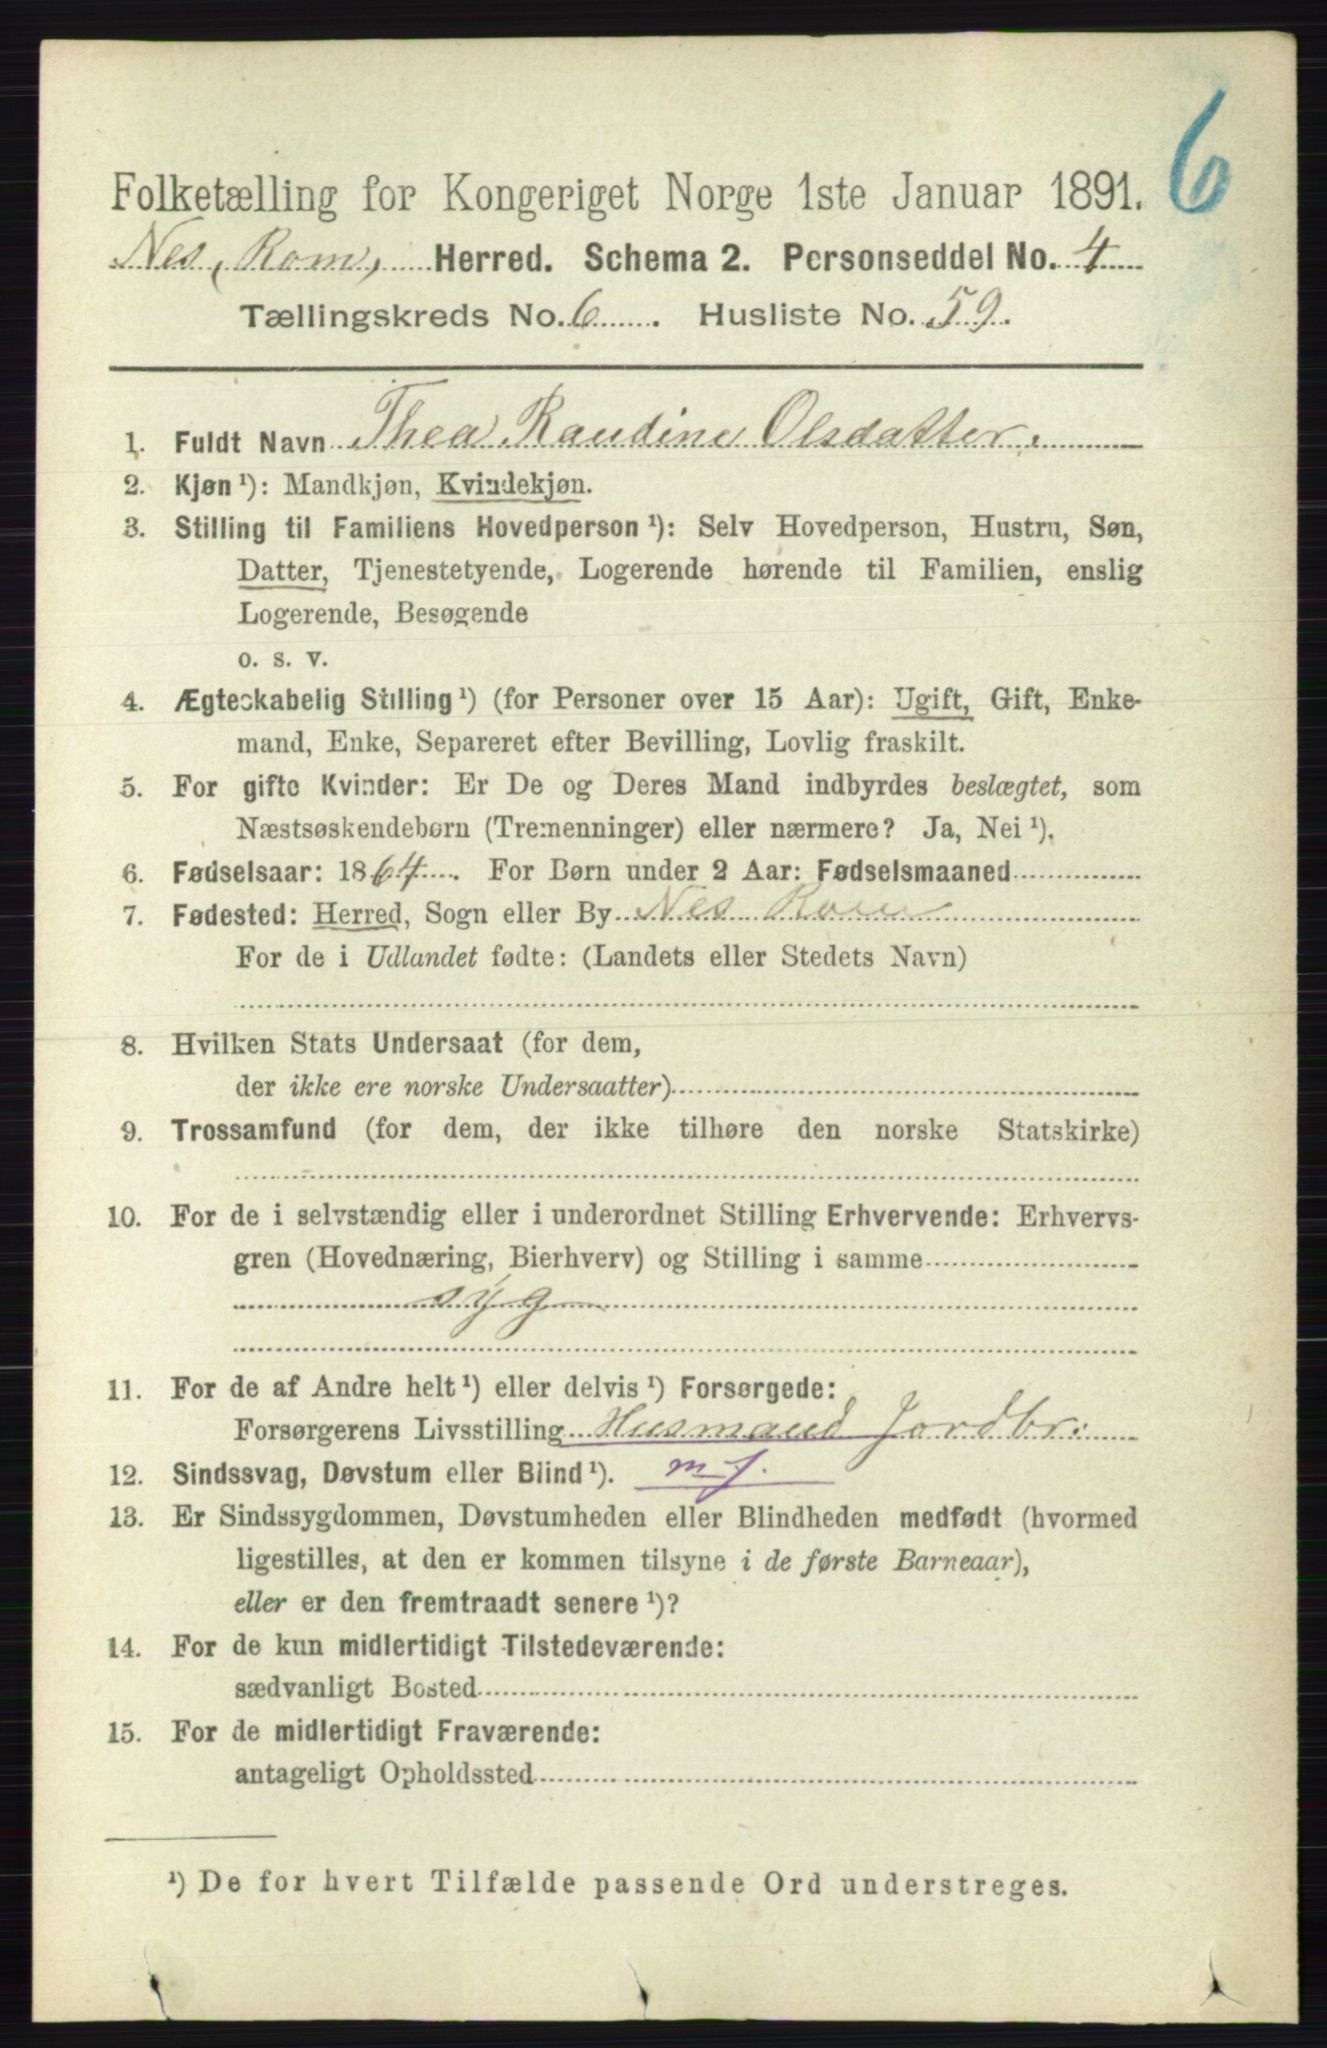 6
Folketælling for Kongeriget Norge 1ste Januar 1891.
Nes, Rom, Herred. Schema 2. Personseddel No. 4
Tællingskreds No. 6 . Husliste No. 59.
1. Fuldt Navn Thea Randine Olsdatter.
2. Kjøn ¹): Mandkjøn, Kvindekjøn.
3. Stilling til Familiens Hovedperson ¹): Selv Hovedperson, Hustru, Søn,
Datter, Tjenestetyende, Logerende hørende til Familien, enslig
Logerende, Besøgende
o. s. v.
4. Ægteskabelig Stilling ¹) (for Personer over 15 Aar): Ugift, Gift, Enke-
mand, Enke, Separeret efter Bevilling, Lovlig fraskilt.
5. For gifte Kvinder: Er De og Deres Mand indbyrdes beslægtet, som
Næstsøskendebørn (Tremenninger) eller nærmere? Ja, Nei ¹).
6. Fødselsaar: 1864. For Børn under 2 Aar: Fødselsmaaned
7. Fødested: Herred, Sogn eller By Nes Rom
For de i Udlandet fødte: (Landets eller Stedets Navn)
8. Hvilken Stats Undersaat (for dem,
der ikke ere norske Undersaatter)
9. Trossamfund (for dem, der ikke tilhøre den norske Statskirke)
10. For de i selvstændig eller i underordnet Stilling Erhvervende: Erhvervs-
gren (Hovednæring, Bierhverv) og Stilling i samme
syg
11. For de af Andre helt ¹) eller delvis ¹) Forsørgede:
Forsørgerens Livsstilling Husmand Jordbr:
12. Sindssvag, Døvstum eller Blind ¹). m j.
13. Er Sindssygdommen, Døvstumheden eller Blindheden medfødt (hvormed
ligestilles, at den er kommen tilsyne i de første Barneaar),
eller er den fremtraadt senere ¹)?
14. For de kun midlertidigt Tilstedeværende:
sædvanligt Bosted
15. For de midlertidigt Fraværende:
antageligt Opholdssted
¹) De for hvert Tilfælde passende Ord understreges.